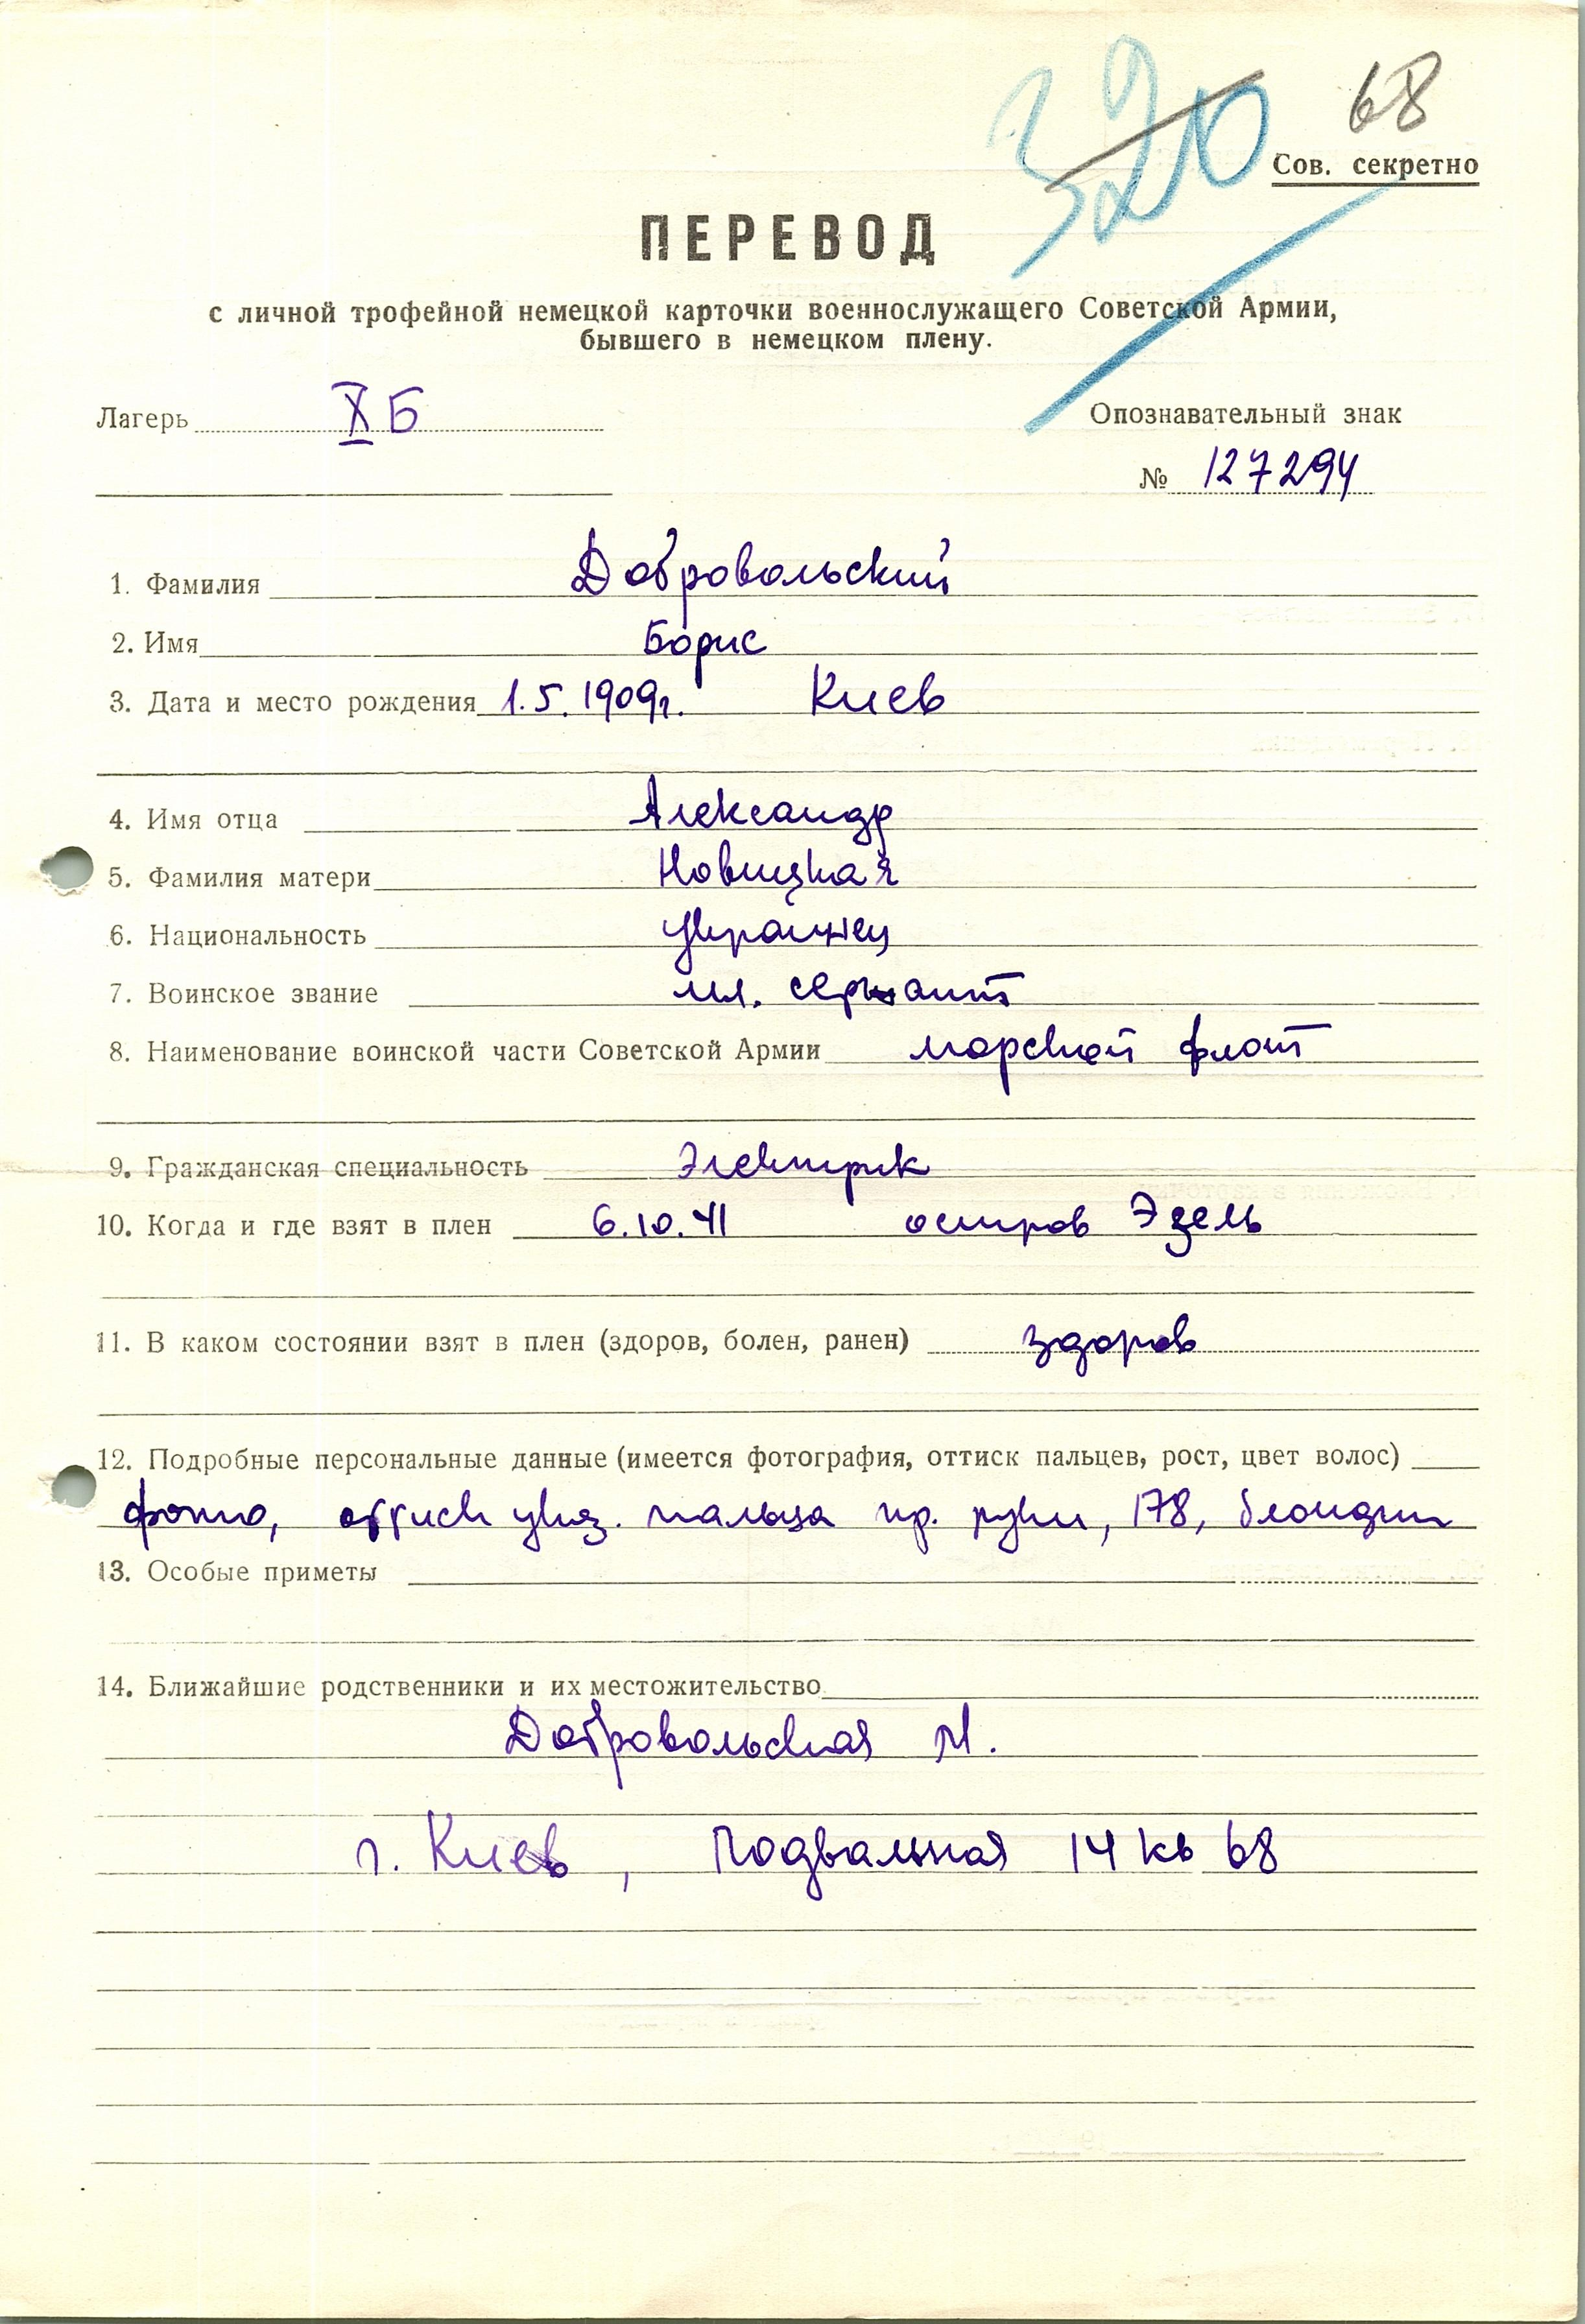 320 68
Сов. секретно
ПЕРЕВОД
с личной трофейной немецкой карточки военнослужащего Советской Армии,
бывшего в немецком плену.
Лагерь X Б
Опознавательный знак
№ 127294
1. Фамилия Добровольский
2. Имя Борис
3. Дата и место рождения 1.5.1909г. Киев
4. Имя отца Александр
5. Фамилия матери Новицкая
6. Национальность украинец
7. Воинское звание мл. сержант
8. Наименование воинской части Советской Армии морской флот
9. Гражданская специальность Электрик
10. Когда и где взят в плен 6.10.41 остров Эзель
11. В каком состоянии взят в плен (здоров, болен, ранен) здоров
12. Подробные персональные данные (имеется фотография, оттиск пальцев, рост, цвет волос)
фото, оттиск указ. пальца пр. руки, 178, блондин
13. Особые приметы
14. Ближайшие родственники и их местожительство
Добровольская М.
г. Киев, Подвальная 14 кв 68